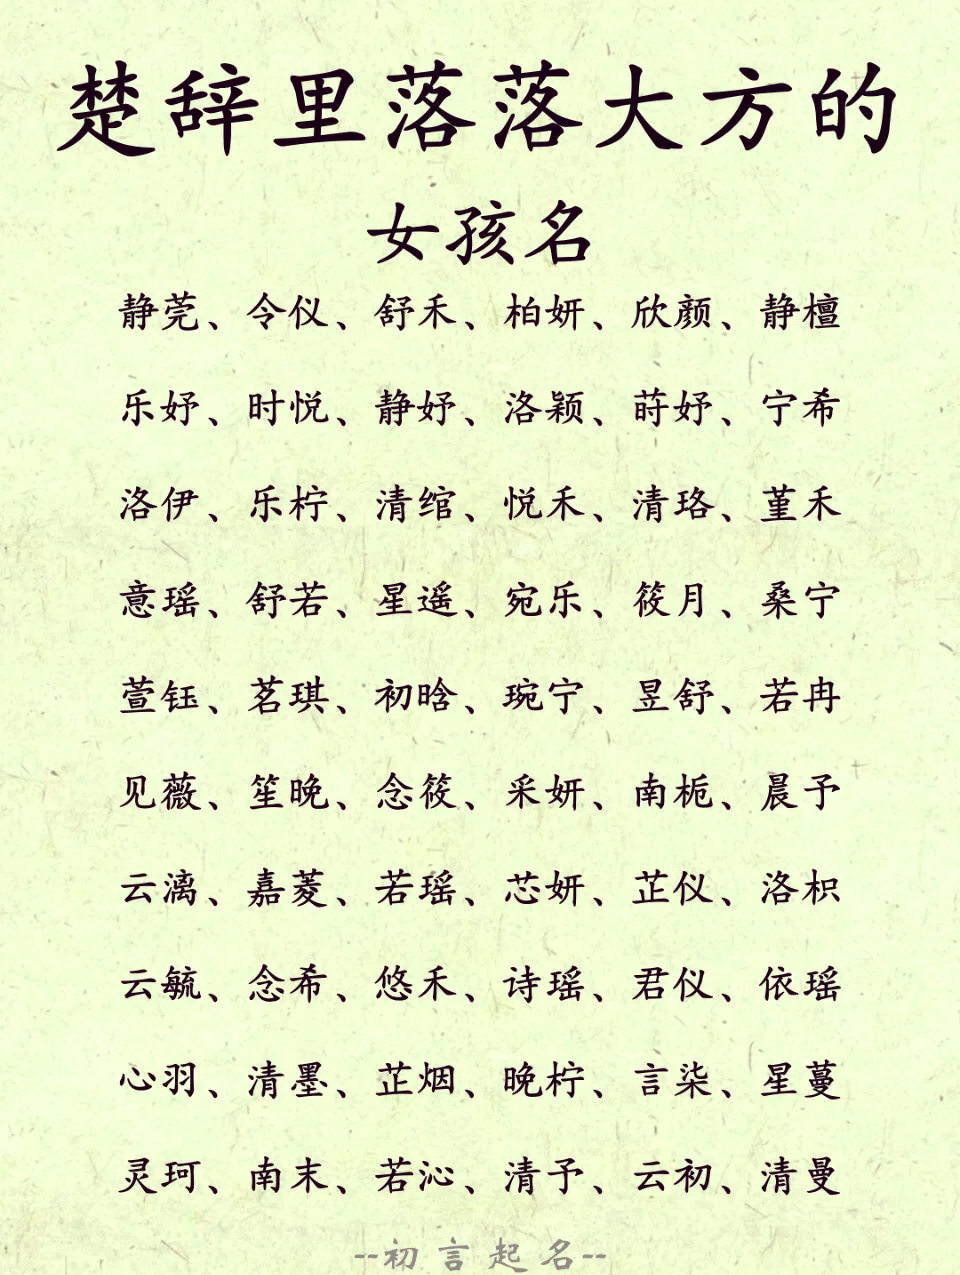 楚辞里落落大方的
女孩名
静莞、令仪、舒禾、柏妍、欣颜、静檀
乐妤、时悦、静妤、洛颖、莳妤、宁希
洛伊、乐柠、清绾、悦禾、清珞、堇禾
意瑶、舒若、星遥、宛乐、筱月、桑宁
萱钰、茗琪、初晗、琬宁、昱舒、若冉
见薇、笙晚、念筱、采妍、南栀、晨予
云漓、嘉菱、若瑶、芯妍、芷仪、洛枳
云毓、念希、悠禾、诗瑶、君仪、依瑶
心羽、清墨、芷烟、晚柠、言柒、星蔓
灵珂、南末、若沁、清予、云初、清曼
--初言起名--